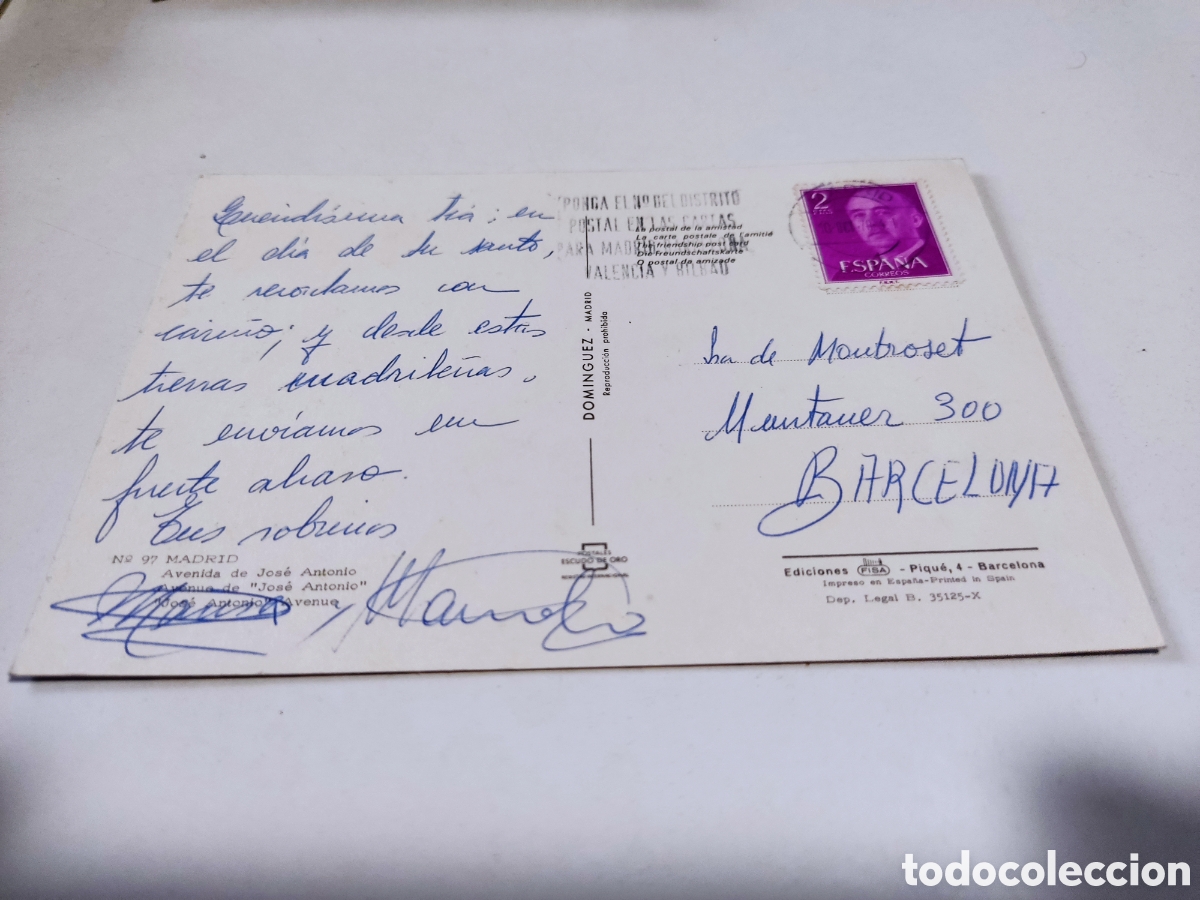 Querindísima tía; en
el día de tu santo,
te recordamos con
cariño; y desde estas
tierras madrileñas,
te enviamos un
fuerte abrazo.
Tus sobrinos
Nº 97 MADRID
Avenida de José Antonio
Avenue de "José Antonio"
"José Antonio" Avenue
y
PONGA EL Nº DEL DISTRITO
POSTAL EN LAS CARTAS
PARA MADRID
VALENCIA Y BILBAO
La postal de la amistad
La carte postale de l'amitié
The friendship post card
Die Freundschaftskarte
O postal da amizade
DOMINGUEZ - MADRID
Reproducción prohibida
POSTALES
ESCUDO DE ORO
2
PTAS
ESPAÑA
CORREOS
Sra de Montroset
Muntaner 300
BARCELONA
Ediciones FISA - Piqué, 4 - Barcelona
Impreso en España-Printed in Spain
Dep. Legal B. 35125-X
todocoleccion